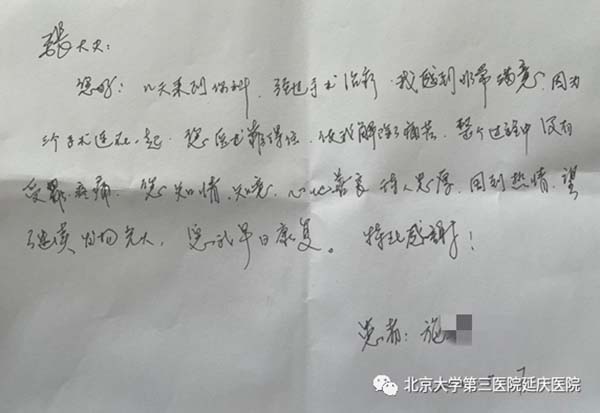 张大夫：
您好：几天来到你科，经过手术治疗，我感到非常满意，因为
三个手术连在一起，您医术精湛，使我解除了痛苦，整个过程中没有
受罪疼痛，您知情知意，心地善良待人忠厚，周到热情，望
继续发扬光大，患我早日康复。特此感谢！
患者：施
7
北京大学第三医院延庆医院